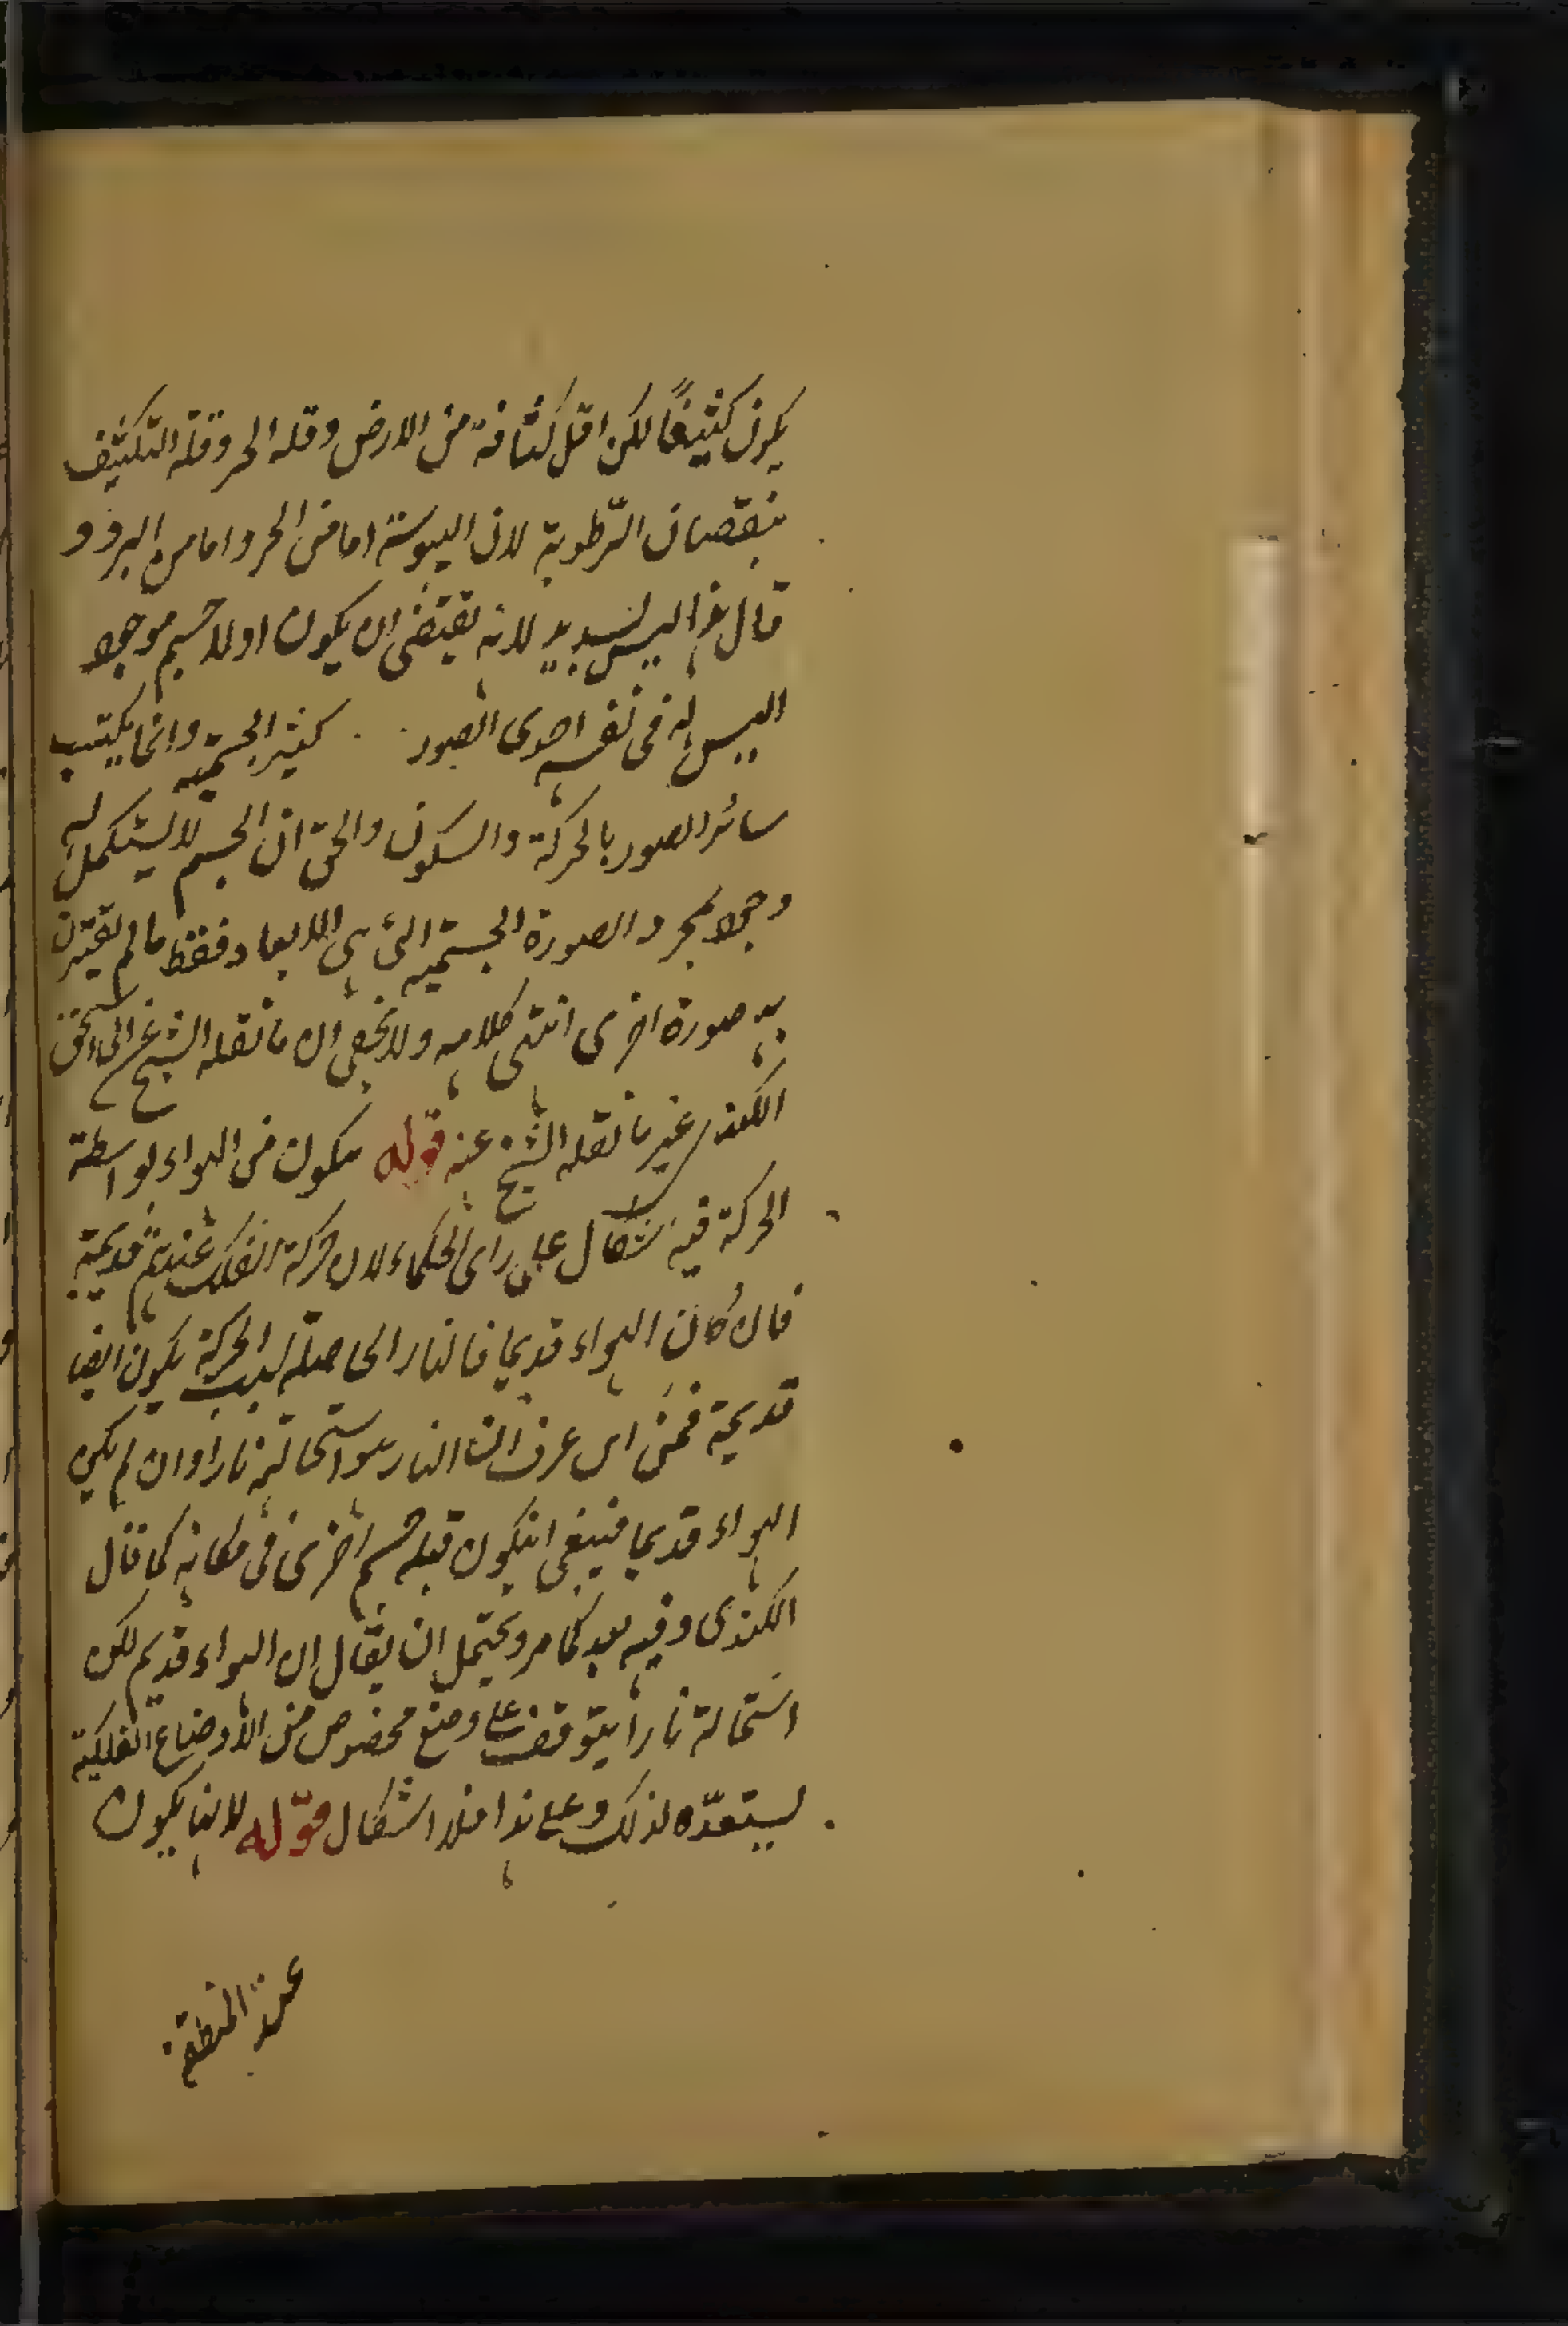 يكون كثيفاً لكن اقل كثافة من الارض وقلة الحر وقلة التكثيف
بنقصان الرّطوبة لان اليبوسة اما من الحر واما من البرد و
قال هذا ليس بسديد لانه يقتضى ان يكون اولا جسم موجود
ليس له فى نفسه احدى الصور كثير الجسمية وانما يكتسب
سائر الصور بالحركة والسكون والحق ان الجسم لا يستكمل له
وجود بمجرد الصورة الجسميّة التى هى الابعاد فقط ما لم يقترن
به صورة اخرى انتهى كلامه ولا يخفى ان ما نقله الشيخ
الكندى غير ما نقله الشيخ عنه قوله يتكون من الهواء بواسطة
الحركة فيه اشكال على راى الحكماء لان حركة الفلك عندهم قديمة
فان كان الهواء قديما فالنار الحاصلة بسبب الحركة يكون ايضا
قديمة فمن اين عرف ان النار هواء استحالته نارا وان لم يكن
الهواء قديما فينبغى انيكون قبله جسم اخرى فى مكانه كما قال
الكندى وفيه بعد كما مر ويحتمل ان يقال ان الهواء قديم لكن
استحالته نارا يتوقف على وضع مخصوص من الأوضاع الفلكية
يستعدّه لذلك وعلى هذا فلا اشكال قوله لانها يكون
عند المنطقة